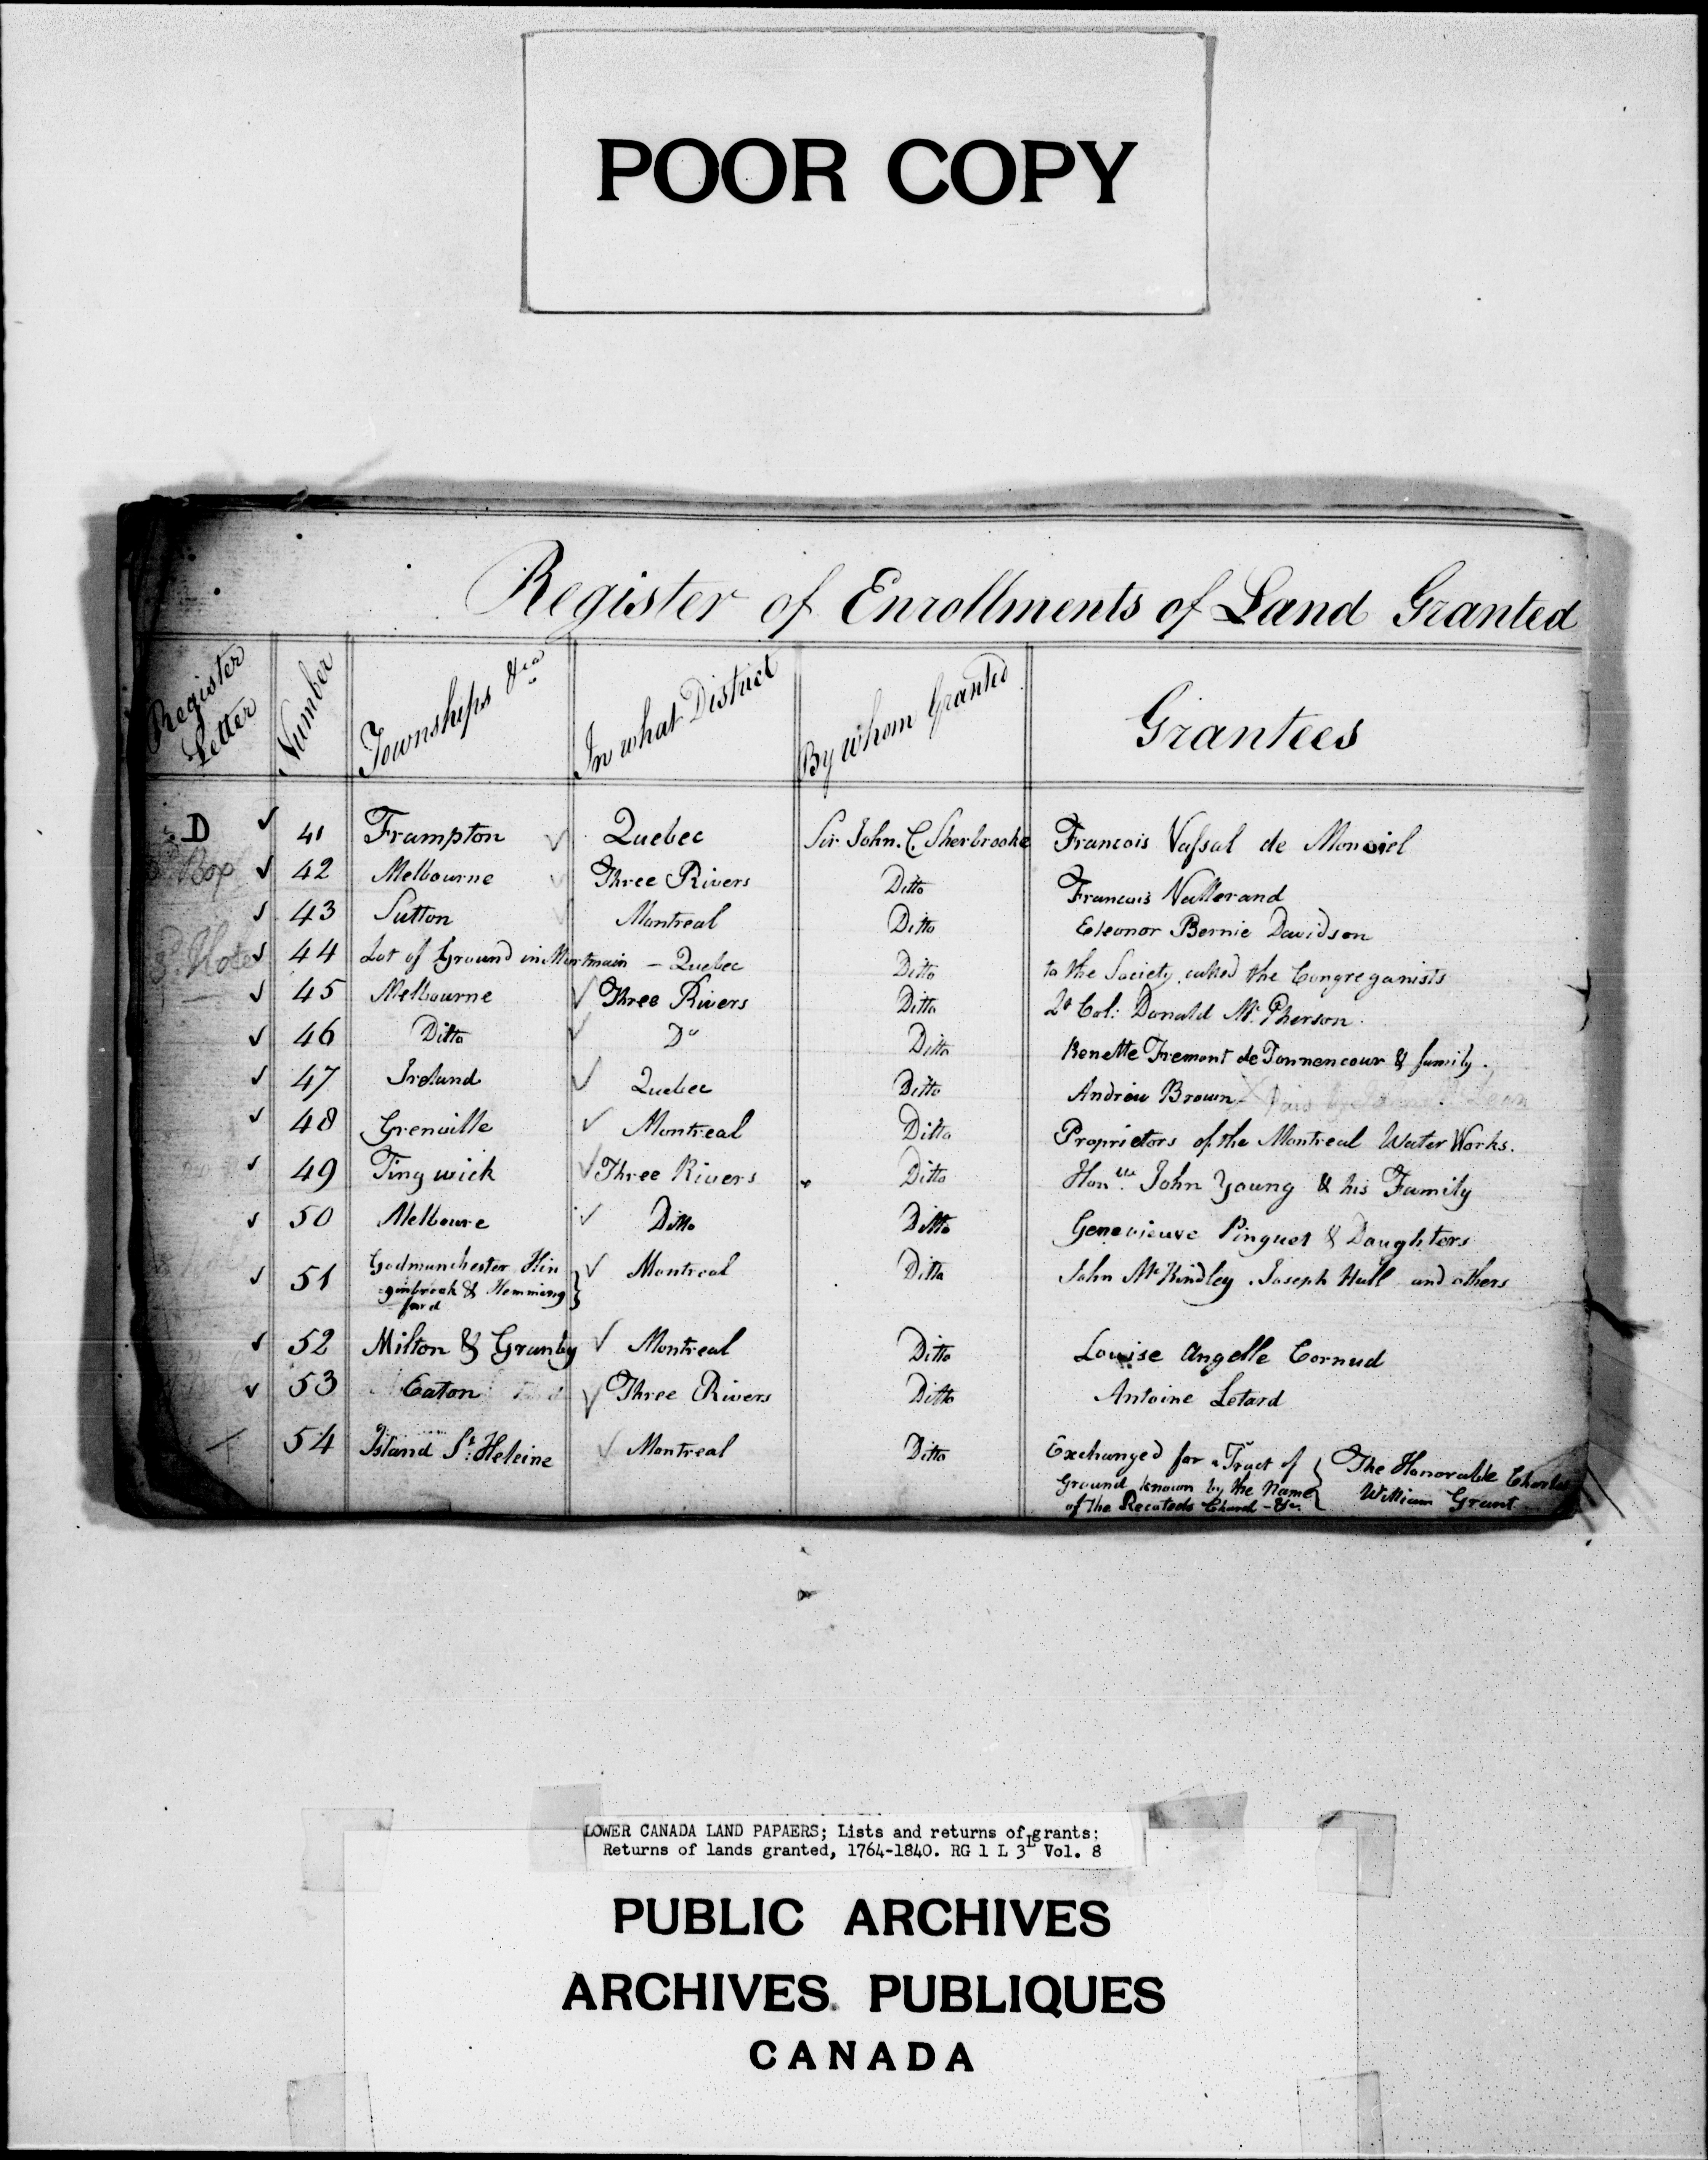 POOR COPY
Register of Enrollments of Land Granted
Register Letter
Number
Townships &ca
In what District
By whom Granted
Grantees
D ✓ 41 Frampton ✓ Quebec Sir John. C. Sherbrooke Francois Vassal de Monviel
Box ✓ 42 Melbourne ✓ Three Rivers Ditto Francois Vallerand
✓ 43 Sutton ✓ Montreal Ditto Eleonor Bernie Davidson
✓ 44 Lot of Ground in Mortmain – Quebec Ditto to the Society called the Congreganists
✓ 45 Melbourne ✓ Three Rivers Ditto Lt Col: Donald Mc. Pherson.
✓ 46 Ditto ✓ Do Ditto Renette Fremont de Tonnencour & family.
✓ 47 Ireland ✓ Quebec Ditto Andrew Brown
✓ 48 Grenville ✓ Montreal Ditto Proprietors of the Montreal Water Works.
✓ 49 Tingwick ✓ Three Rivers Ditto Honble. John Young & his Family
✓ 50 Melboure ✓ Ditto Ditto Genevieuve Pinguet & Daughters
✓ 51 Godmanchester Hin
ginbrook & Hemming
ford } ✓ Montreal Ditto John McKindley. Joseph Hull and others
✓ 52 Milton & Granby ✓ Montreal Ditto Louise Angelle Cornud
✓ 53 Eaton ✓ Three Rivers Ditto Antoine Letard
54 Island St. Heleine ✓ Montreal Ditto Exchanged for a Tract of
Ground known by the Name
of the Recatods &c. } The Honorable Charles
William Grant
LOWER CANADA LAND PAPAERS; Lists and returns of grants:
Returns of lands granted, 1764-1840. RG 1 L 3L Vol. 8
PUBLIC ARCHIVES
ARCHIVES PUBLIQUES
CANADA